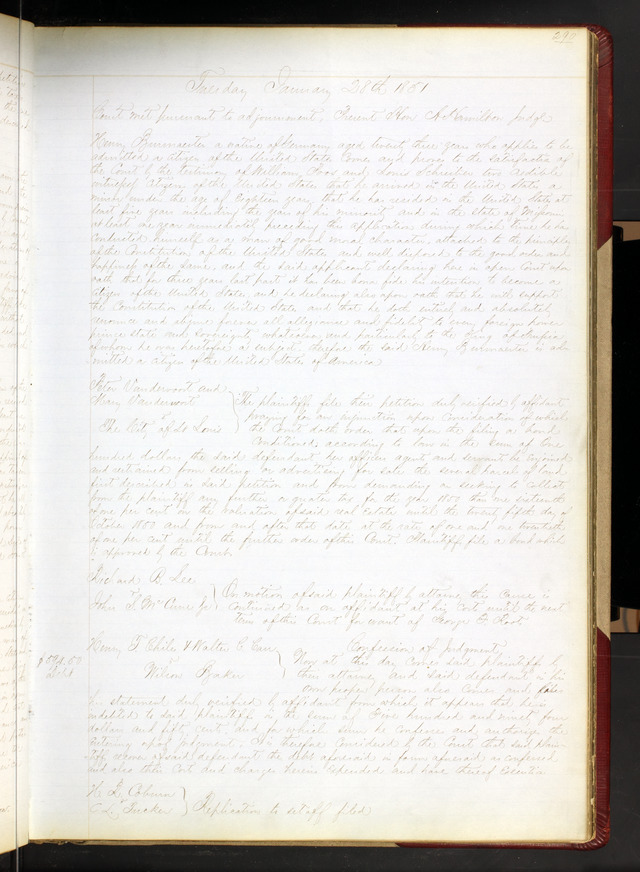 290
Tuesday January 28th 1851
Court met pursuant to adjournment, Present Hon A Hamilton Judge
Henry Burmaester a native of Germany aged twenty three years who applies to be
admitted a citizen of the United States Comes and proves to the satisfaction of
the Court by the testimony of William and Louis Schreiber two credible
witnesses citizens of the United States that he arrived in the United States a
minor under the age of Eighteen years, that he has resided in the United States at
least five years including the years of his minority and in the state of Missouri
at least one year immediately preceding this application during which time he has
conducted himself as a man of good moral character, attached to the principles
of the Constitution of the United States and well disposed to the good order and
happiness of the same, and the said applicant declaring here in open Court upon
oath that for three years last past it has been bona fide his intention to become a
citizen of the United States and he declaring also upon oath that he will support
the Constitution of the United States, and that he doth entirely and absolutely
renounce and abjure forever all allegiance and fidelity to every foreign power
prince state and sovereignty whatsoever and particularly to the King of Prussia
of whom he was heretofore a subject, therefore the said Henry Burmaester is ad-
mitted a citizen of the United States of America
Peter Vandervoort and
Mary Vandervoort
vs
The City of St Louis
The plaintiffs file their petition duly verified by affidavit
praying for an injunction upon Consideration of which
the Court doth order that upon the filing a bond
Conditioned, according to law in the sum of One
hundred dollars the said defendant her officers agents and servants be enjoined
and restrained from selling or advertising for sale the several parcels of land
first described in said petition and from demanding or seeking to collect
from the plaintiff any further or greater tax for the year 1850 than one sixteenth
of one per cent on the valuation of said real Estate until the twenty fifth day of
October 1850 and from and after that date at the rate of one and one twentieth
of one per cent until the further order of this Court. Plaintiffs file a bond which
is approved by the Court
Richard R Lee
vs
John T. McCune Jr
On motion of said plaintiff by attorney this cause is
continued as on affidavit at his Cost until the next
term of this Court for want of George F Root
Henry T Chiles & Walter C Carr
vs
Wilson Booker
$594.50
debt
Confession of Judgment
Now at this day comes said plaintiffs by
their attorney and said defendant in his
own proper person also comes and files
his statement duly verified by affidavit from which it appears that he is
indebted to said plaintiffs in the sum of Five hundred and ninety four
dollars and fifty cents and for which sum he confesses and authorizes the
entering up of judgment. It is therefore considered by the Court that said plain-
tiffs recover of said defendant the debt aforesaid in form aforesaid as confessed
and also their Cost and charges herein expended and have thereof Execution
H. L. Coburn
vs
C L Tucker
Replication to set off filed